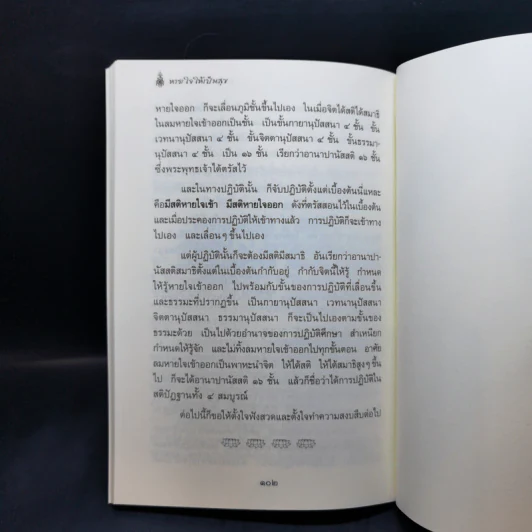 หายใจให้เป็นสุข
หายใจออก ก็จะเลื่อนภูมิชั้นขึ้นไปเอง ในเมื่อจิตได้สติได้สมาธิ
ในลมหายใจเข้าออกเป็นชั้น เป็นชั้นกายานุปัสสนา ๔ ชั้น ชั้น
เวทนานุปัสสนา ๔ ชั้น ชั้นจิตตานุปัสสนา ๔ ชั้น ชั้นธรรมา-
นุปัสสนา ๔ ชั้น เป็น ๑๖ ชั้น เรียกว่าอานาปานัสสติ ๑๖ ชั้น
ซึ่งพระพุทธเจ้าได้ตรัสไว้
และในทางปฏิบัตินั้น ก็จับปฏิบัติตั้งแต่เบื้องต้นนี่แหละ
คือมีสติหายใจเข้า มีสติหายใจออก ดังที่ตรัสสอนไว้ในเบื้องต้น
และเมื่อประคองการปฏิบัติให้เข้าทางแล้ว การปฏิบัติก็จะเข้าทาง
ไปเอง และเลื่อนๆ ขึ้นไปเอง
แต่ผู้ปฏิบัตินั้นก็จะต้องมีสติมีสมาธิ อันเรียกว่าอานาปา-
นัสสติสมาธิตั้งแต่ในเบื้องต้นกำกับอยู่ กำกับจิตนี้ให้รู้ กำหนด
ให้รู้หายใจเข้าออก ไปพร้อมกับขั้นของการปฏิบัติที่เลื่อนขึ้น
และธรรมะที่ปรากฏขึ้น เป็นกายานุปัสสนา เวทนานุปัสสนา
จิตตานุปัสสนา ธรรมานุปัสสนา ก็จะเป็นไปเองตามขั้นของ
ธรรมะด้วย เป็นไปด้วยอำนาจของการปฏิบัติศึกษา สำเหนียก
กำหนดให้รู้จัก และไม่ทิ้งลมหายใจเข้าออกไปทุกขั้นตอน อาศัย
ลมหายใจเข้าออกเป็นพาหะนำจิต ให้ได้สติ ให้ได้สมาธิสูงๆ ขึ้น
ไป ก็จะได้อานาปานัสสติ ๑๖ ชั้น แล้วก็ชื่อว่าได้การปฏิบัติใน
สติปัฏฐานทั้ง ๔ สมบูรณ์
ต่อไปนี้ก็ขอให้ตั้งใจฟังสวดและตั้งใจทำความสงบสืบต่อไป
๑๐๒